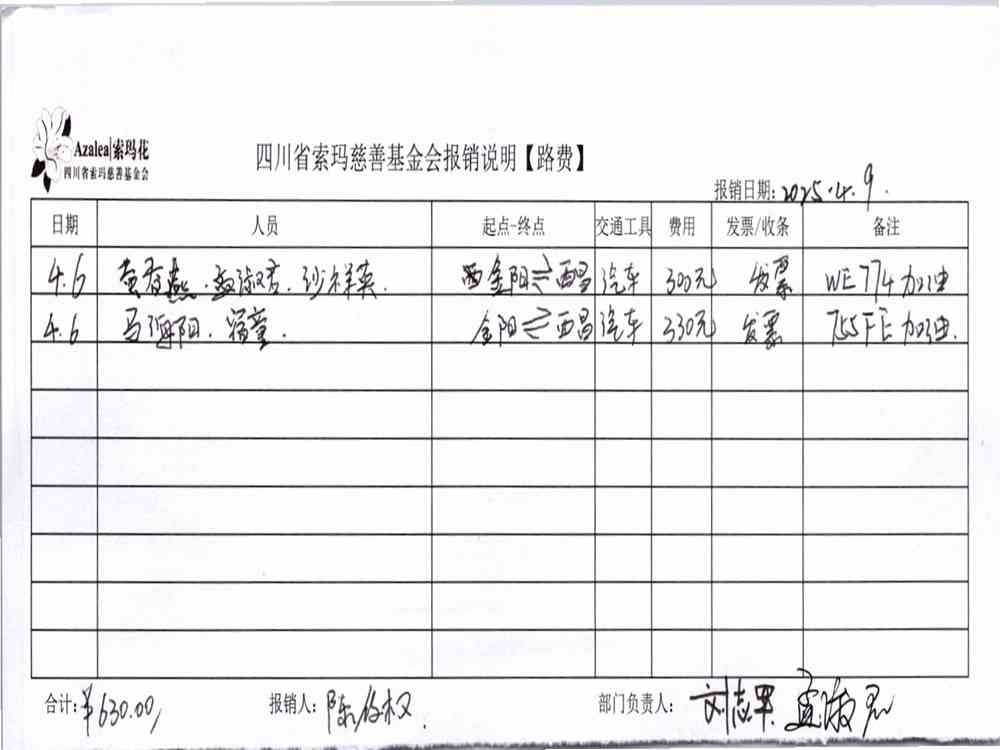 Azalea|索玛花
四川省索玛慈善基金会
四川省索玛慈善基金会报销说明【路费】
报销日期: 2025.4.9.
日期 人员 起点-终点 交通工具 费用 发票/收条 备注
4.6 黄春燕. 淑君. 沙祥英. 金阳⇌西昌 汽车 300元 发票 WE774加油
4.6 马海阳. 金阳⇌西昌 汽车 330元 发票 755FE加油.
合计: ¥630.00/ 报销人: 陈 权. 部门负责人: 刘志军 孟淑君